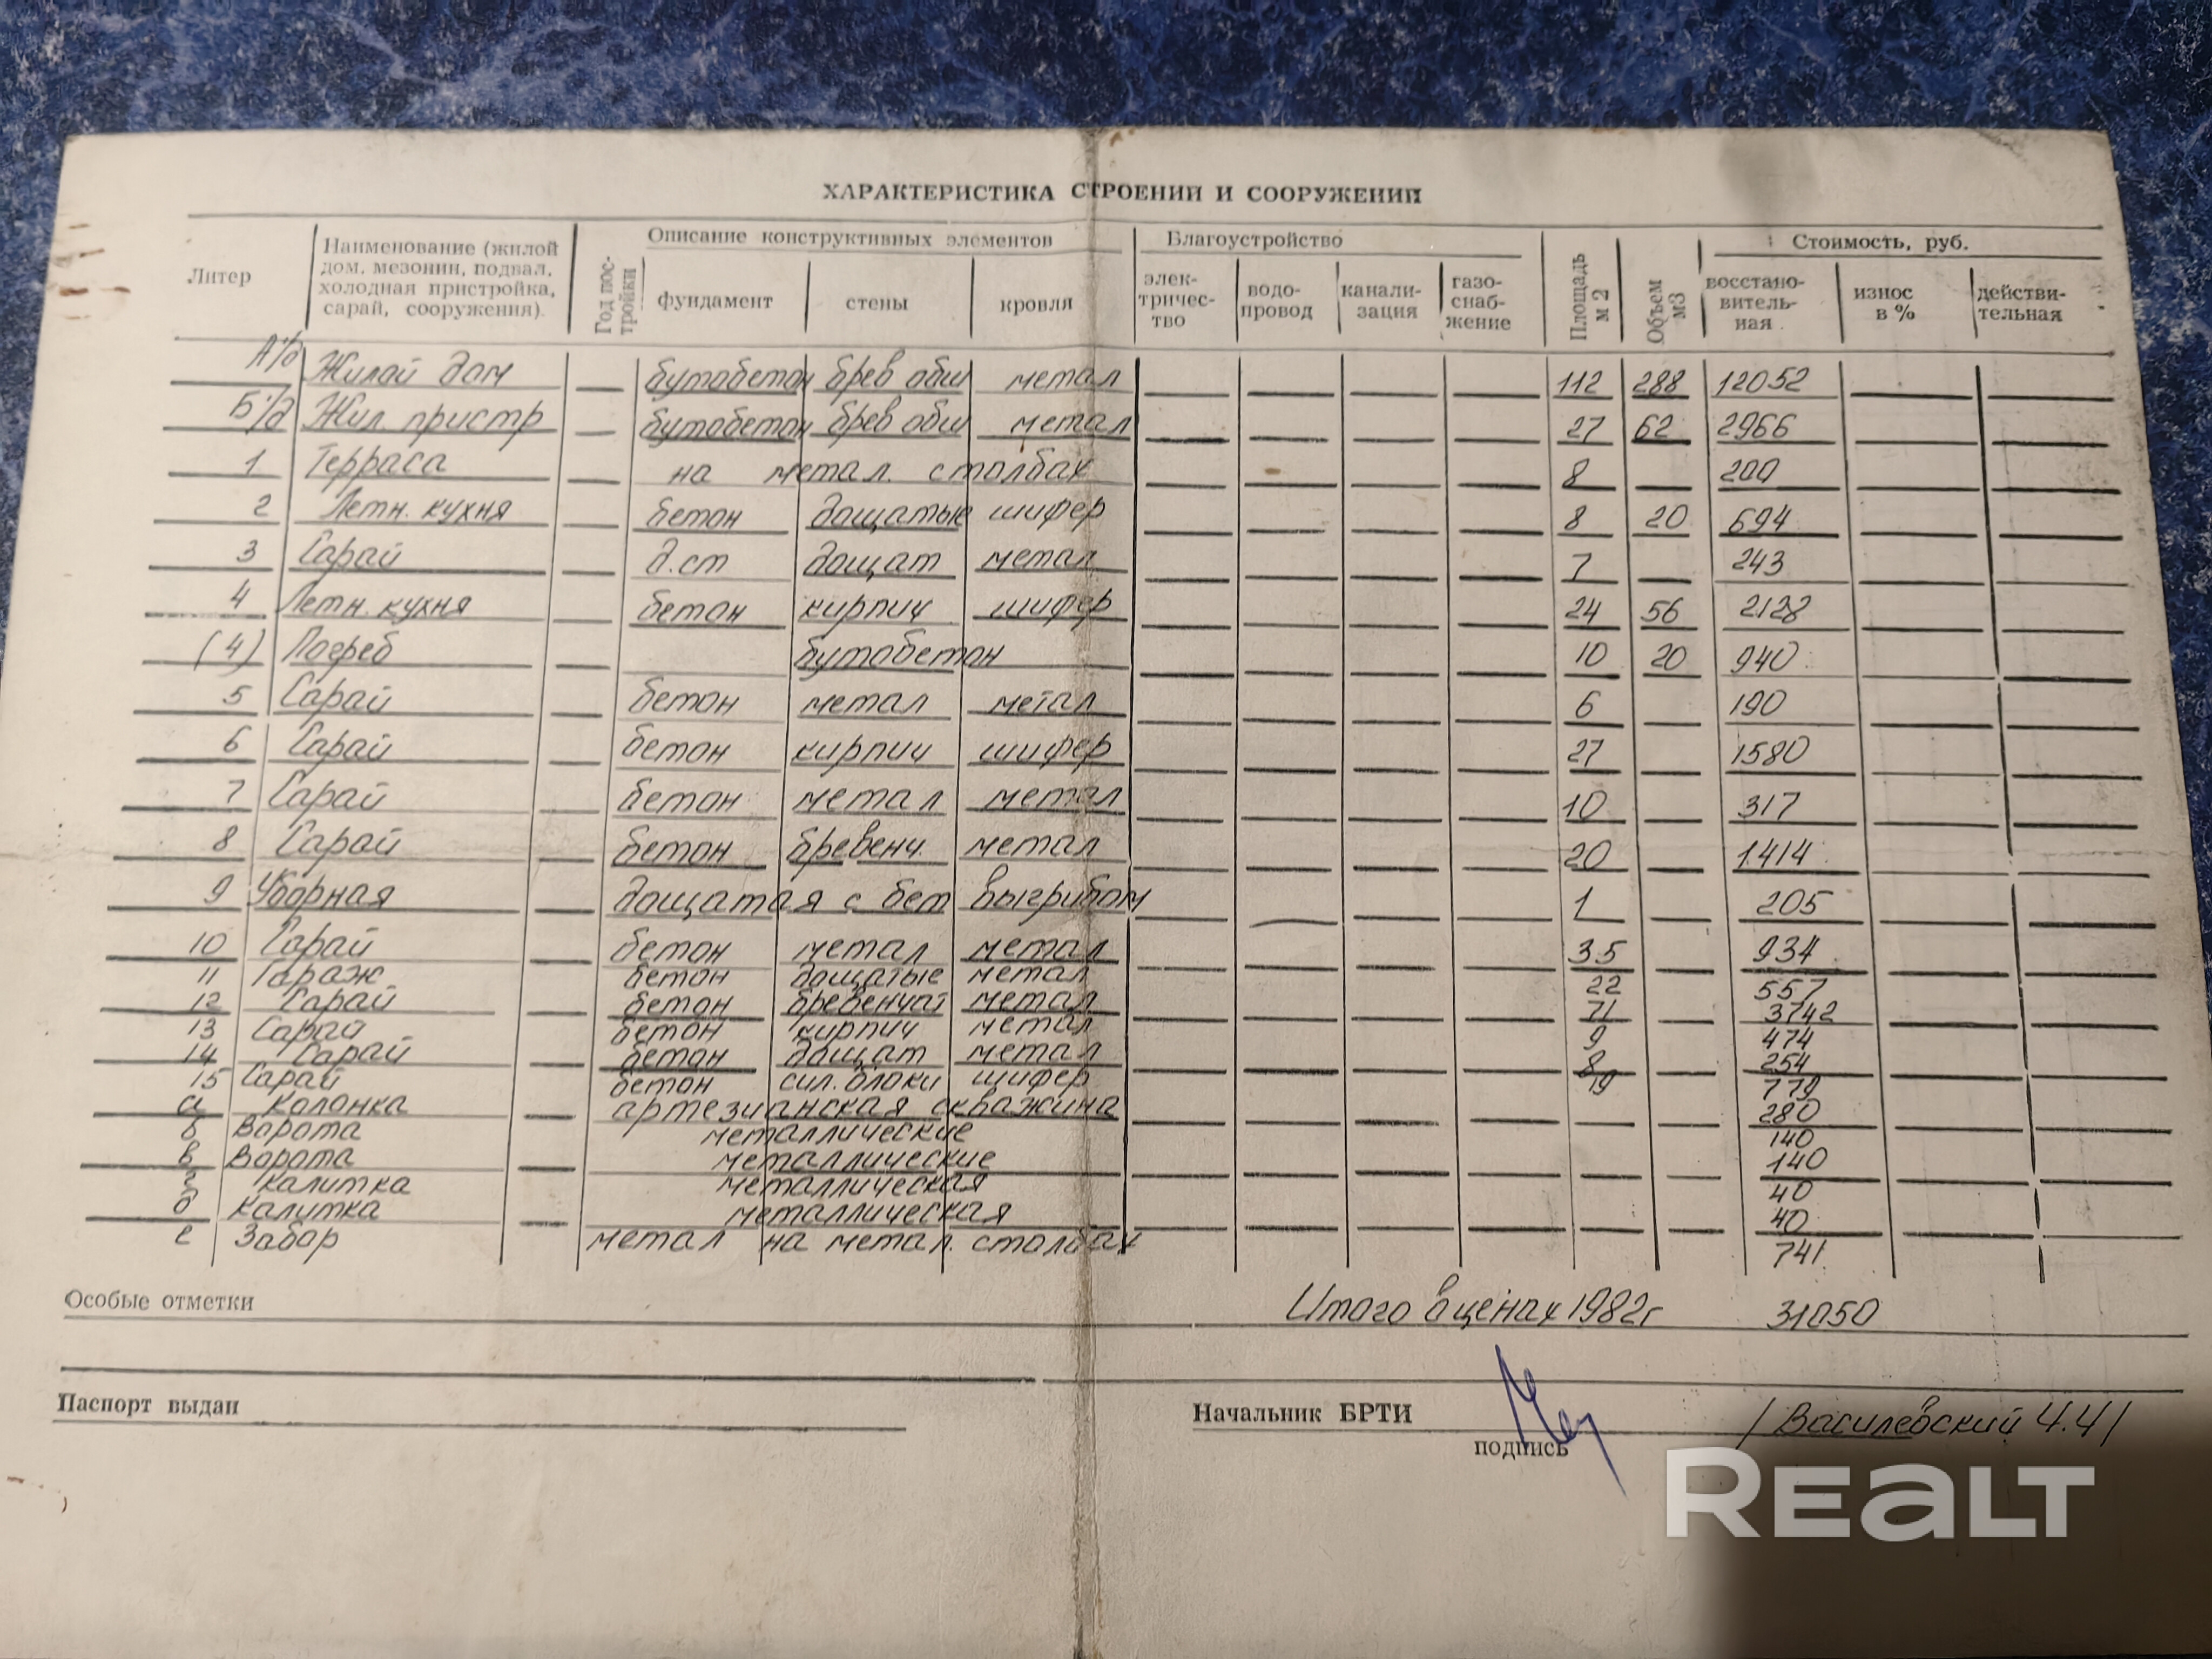 ХАРАКТЕРИСТИКА СТРОЕНИЙ И СООРУЖЕНИЙ
Литер Наименование (жилой дом, мезонин, подвал, холодная пристройка, сарай, сооружения). Год постройки Описание конструктивных элементов Благоустройство Площадь м2 Объем м3 Стоимость, руб.
фундамент стены кровля элек-тричес-тво водо-провод канали-зация газо-снаб-жение восстано-витель-ная износ в % действи-тельная
Жилой дом — бутобетон брев обш метал — — — — 112 288 12052 — —
Жил. пристр — бутобетон брев обш метал — — — — 27 62 2966 — —
1 Терраса — на метал. столбах — — — — 8 — 200 — —
2 Летн. кухня — бетон дощатые шифер — — — — 8 20 694 — —
3 Сарай — д.ст дощат метал — — — — 7 — 243 — —
4 Летн. кухня — бетон кирпич шифер — — — — 24 56 2128 — —
(4) Погреб — бутобетон — — — — 10 20 940 — —
5 Сарай — бетон метал метал — — — — 6 — 190 — —
6 Сарай — бетон кирпич шифер — — — — 27 — 1580 — —
7 Сарай — бетон метал метал — — — — 10 — 317 — —
8 Сарай — бетон бревенч. метал — — — — 20 — 1414 — —
9 Уборная — дощатая с бет выгрибом — — — — 1 — 205 — —
10 Сарай — бетон метал метал — — — — 35 — 934 — —
11 Гараж бетон дощатые метал 22 557
12 Сарай — бетон бревенчат метал — — — — 71 — 3742 — —
13 Сарай бетон кирпич метал 9 474
14 Сарай — бетон дощат метал — — — — 8 — 254 — —
15 Сарай бетон сил. блоки шифер 19 779
а Колонка — артезианская скважина — — — — — — 280 — —
б Ворота металлические 140
в Ворота — металлические — — — — — — 140 — —
г Калитка металлическая 40
д Калитка — металлическая — — — — — — 40 — —
е Забор метал на метал. столбах 741
Особые отметки Итого в ценах 1982г 31050
Паспорт выдан Начальник БРТИ / Василевский Ч.Ч /
подпись
REALT